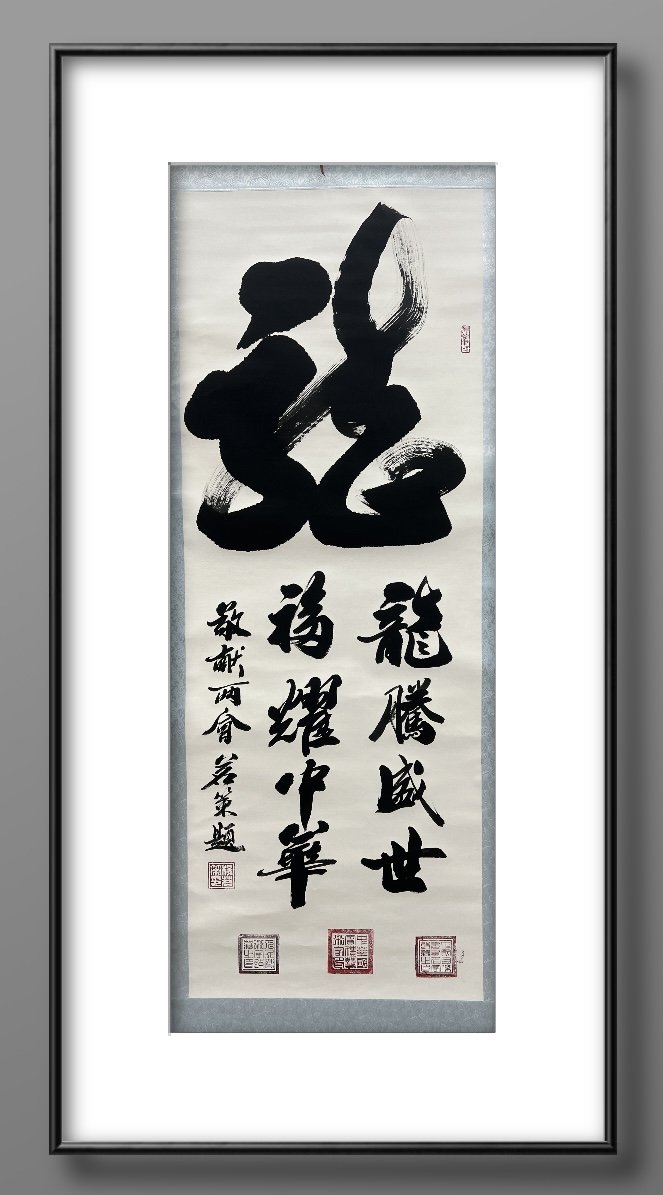 龍
龍騰盛世
福耀中華
敬献两會 若策題